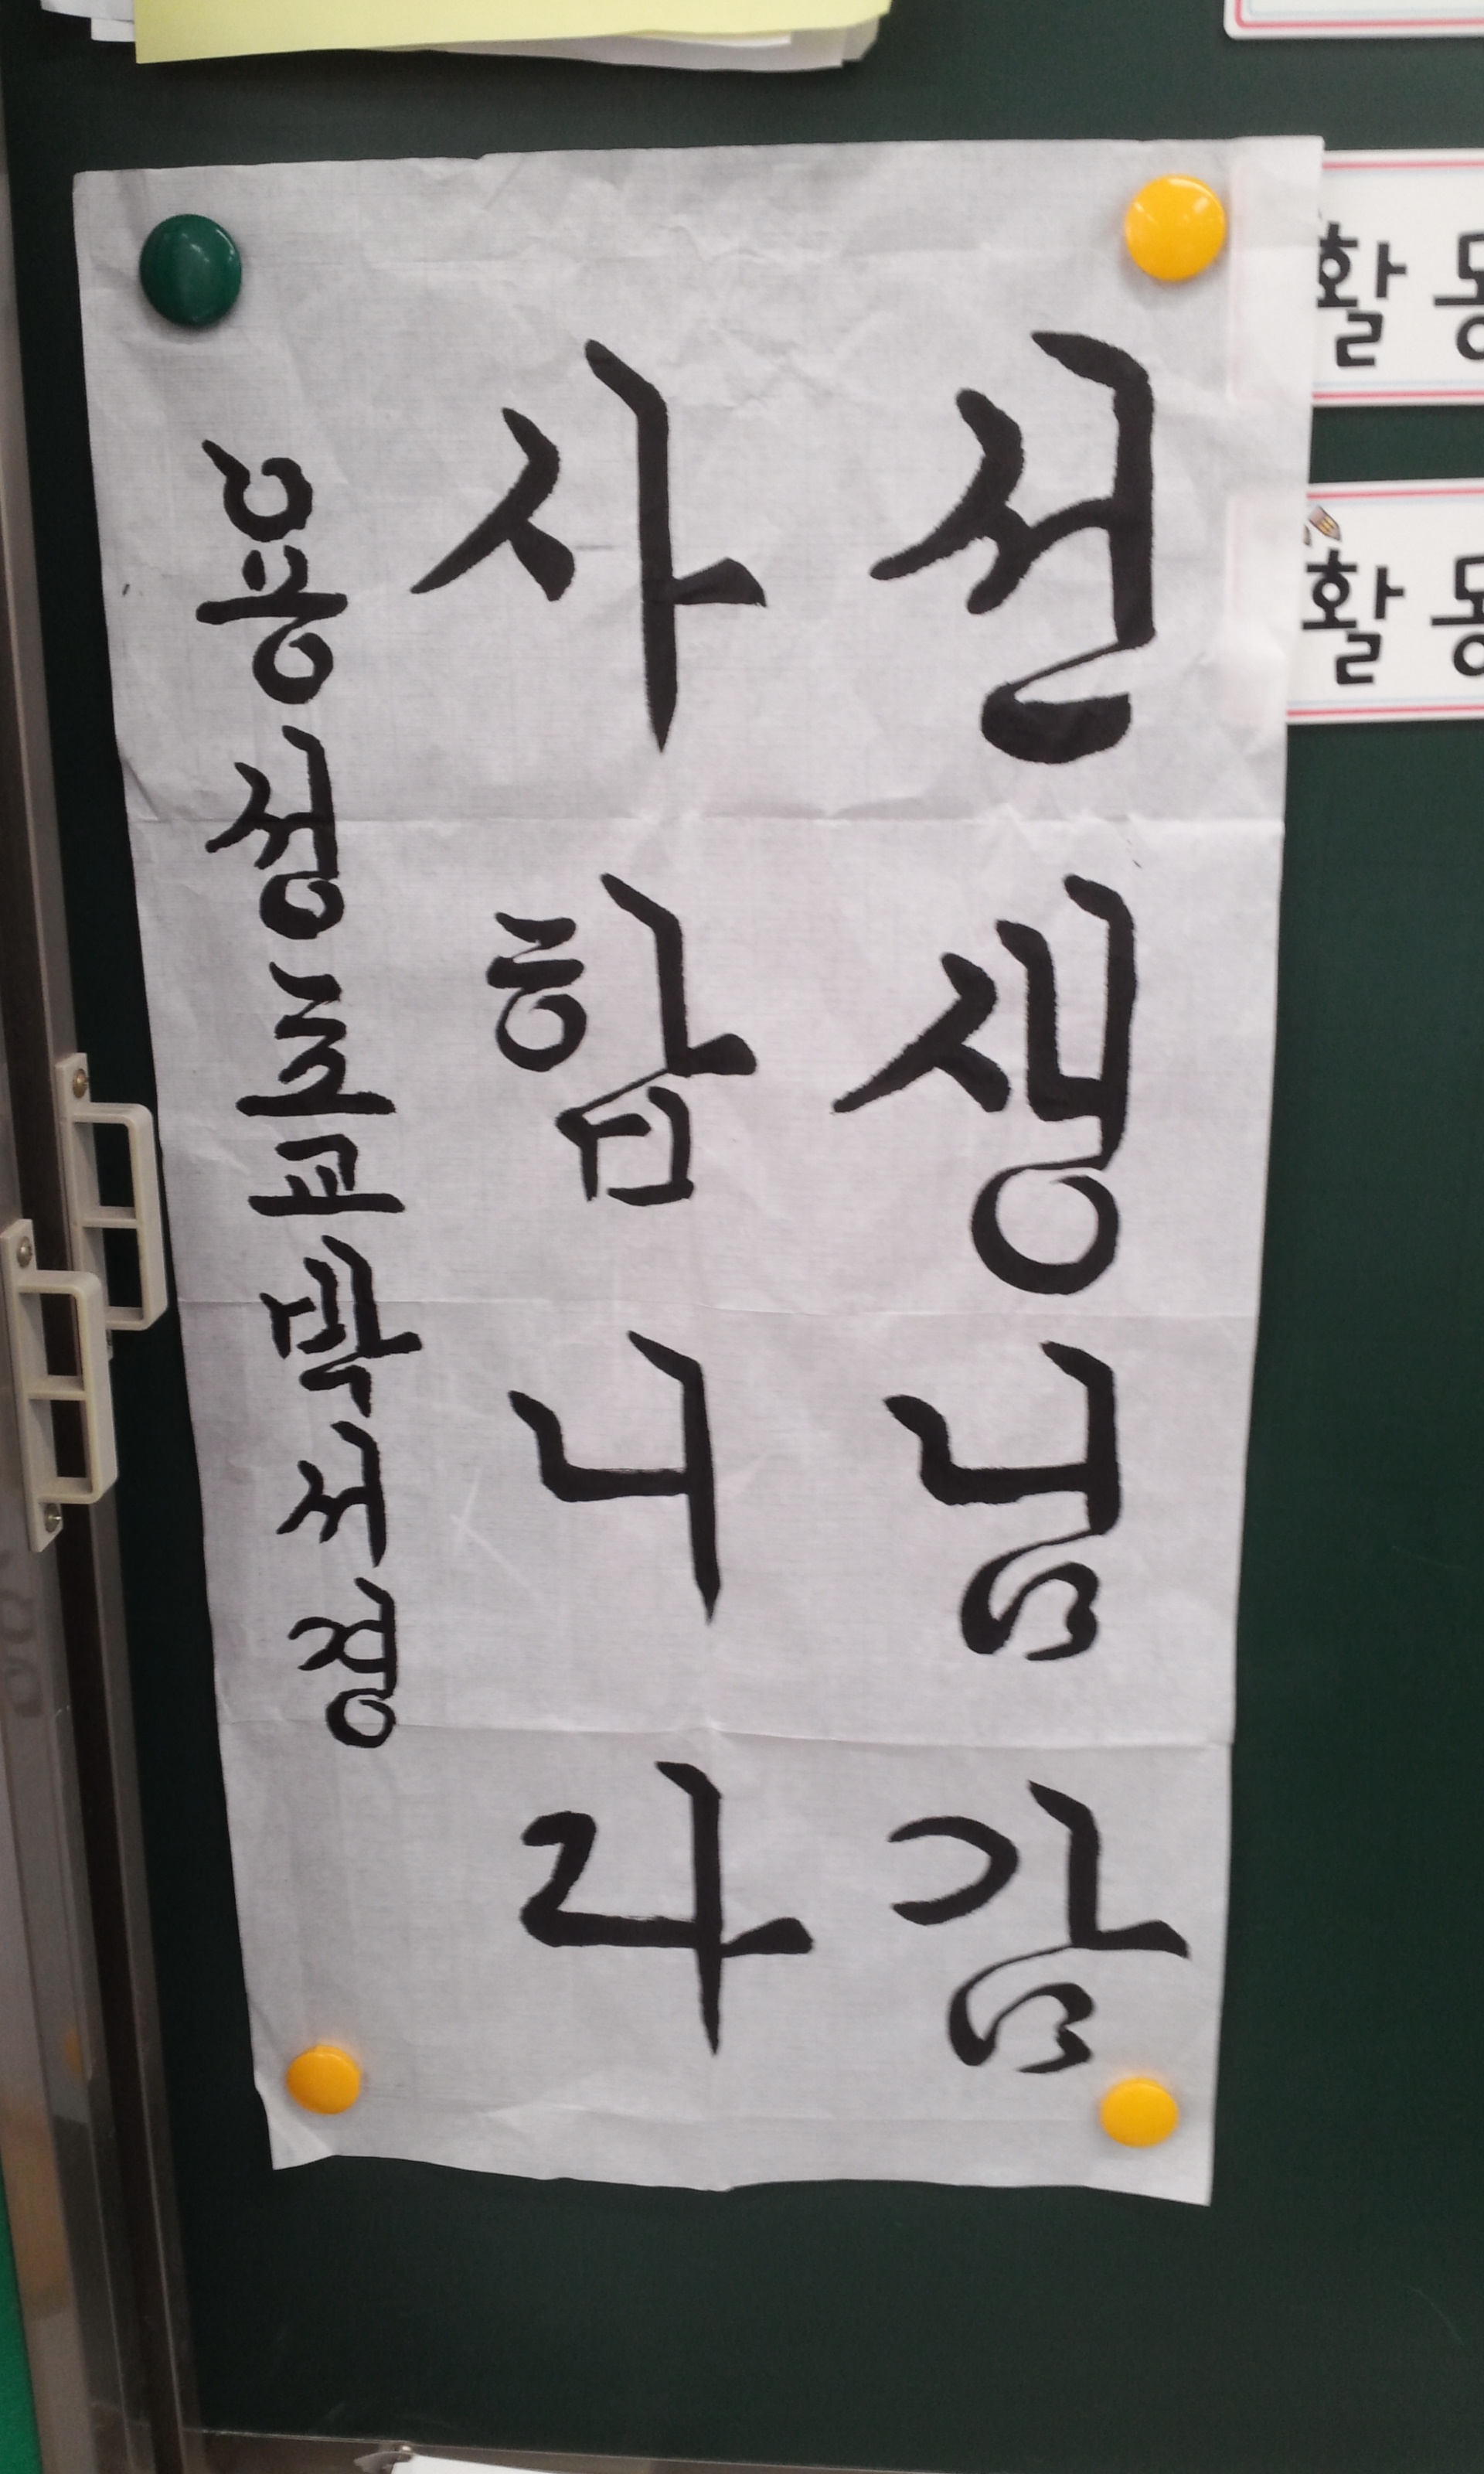 선생님감
사합니다
용성초교박서
활동
활동